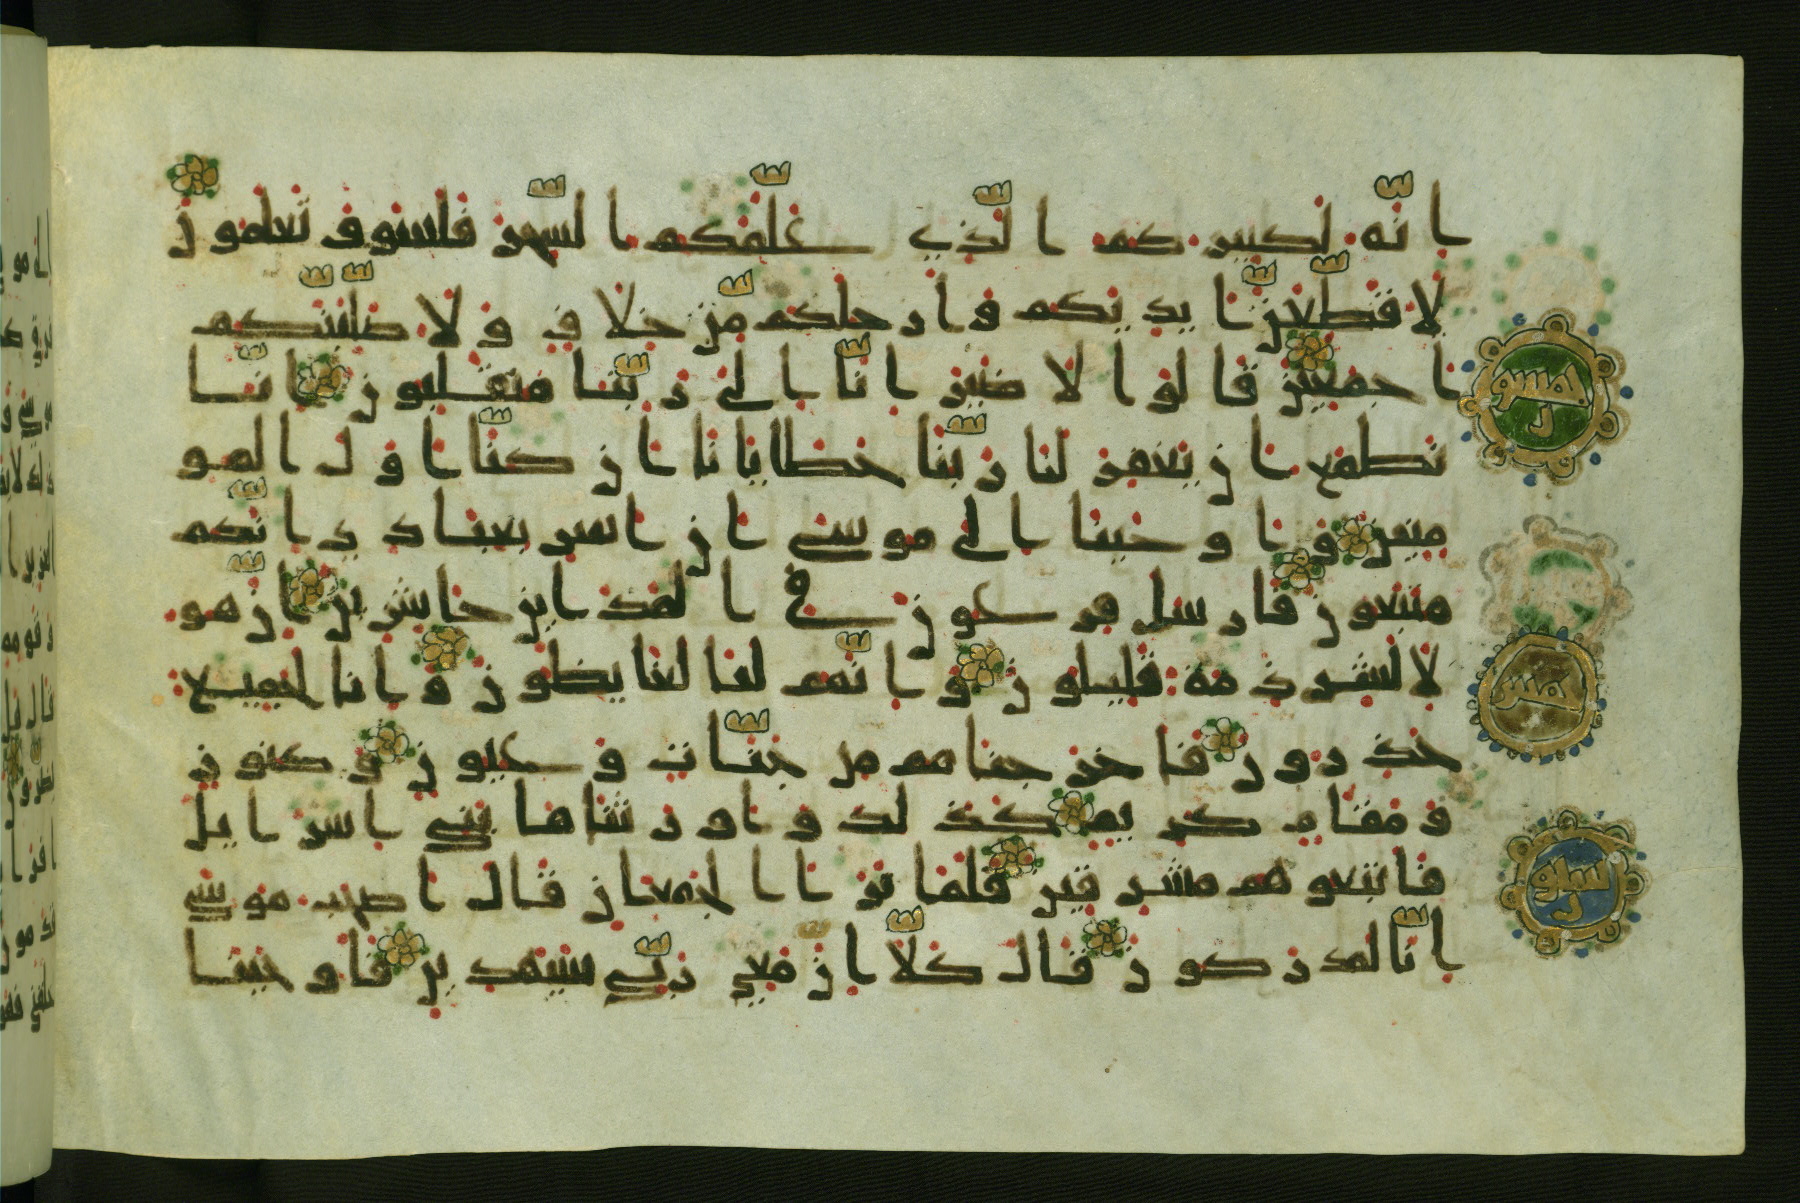 انه لكبيركم الذي علمكم السحر فلسوف تعلمون
لاقطعن ايديكم وارجلكم من خلاف ولاصلبنكم
اجمعين قالوا لا ضير انا الى ربنا منقلبون انا
نطمع ان يغفر لنا ربنا خطايانا ان كنا اول المو
منين واوحينا الى موسى ان اسر بعبادي انكم
متبعون فارسل فرعون في المداين حاشرين ان هو
لا لشرذمة قليلون وانهم لنا لغايظون وانا لجميع
حذرون فاخرجناهم من جنات وعيون وكنوز
ومقام كريم كذلك واورثناها بني اسرايل
فاتبعوهم مشرقين فلما تراا الجمعان قال اصحب موسى
انا لمدركون قال كلا ان معي ربي سيهدين فاوحينا
خمسون
خمس
ستون